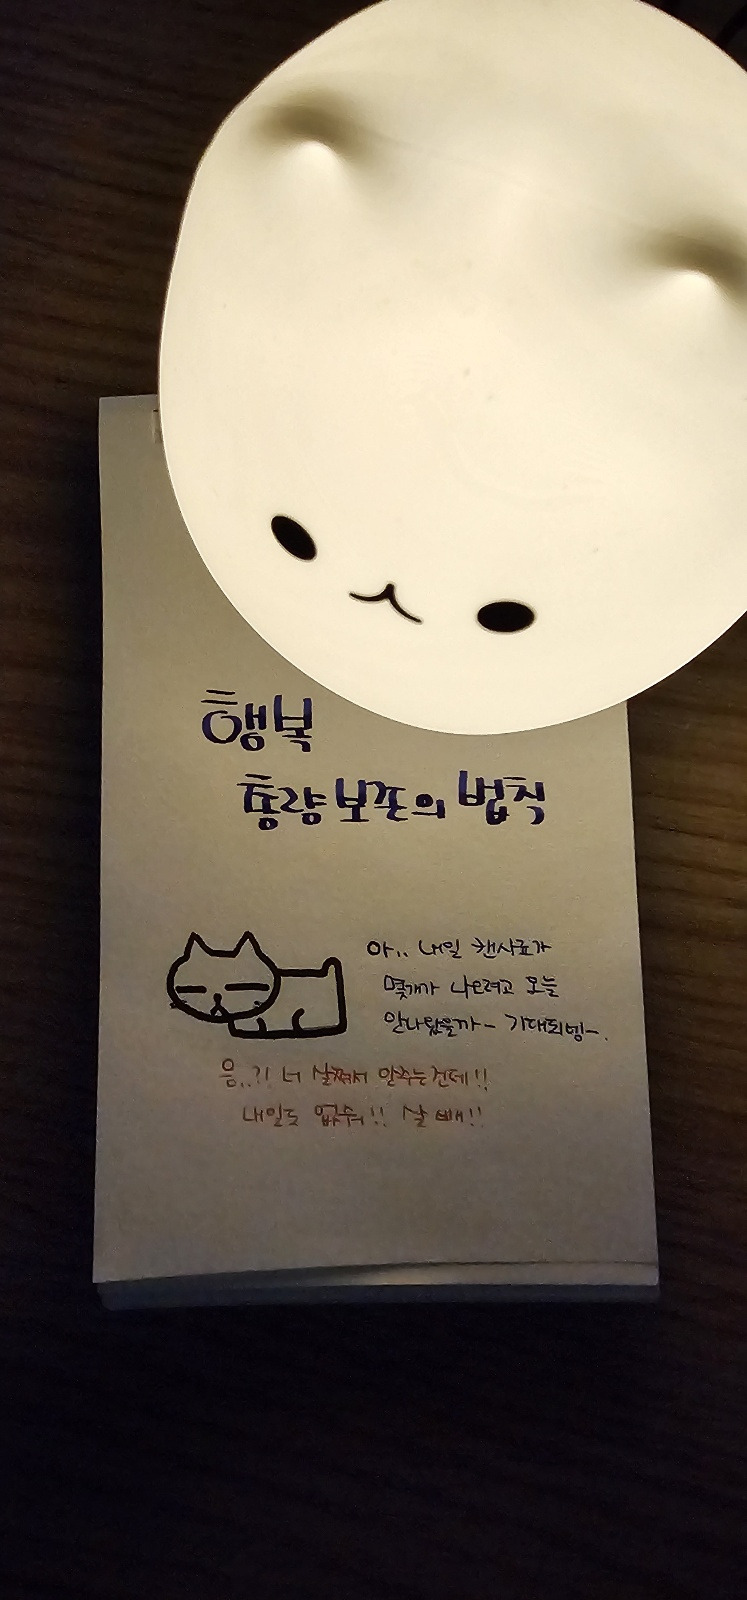 행복
총량 보존의 법칙
아.. 내일 캔사료가
몇개가 나오려고 오늘
안나왔을까~ 기대되넹~.
음..?! 너 살쪄서 안주는건데!!
내일도 없어!! 살 빼!!